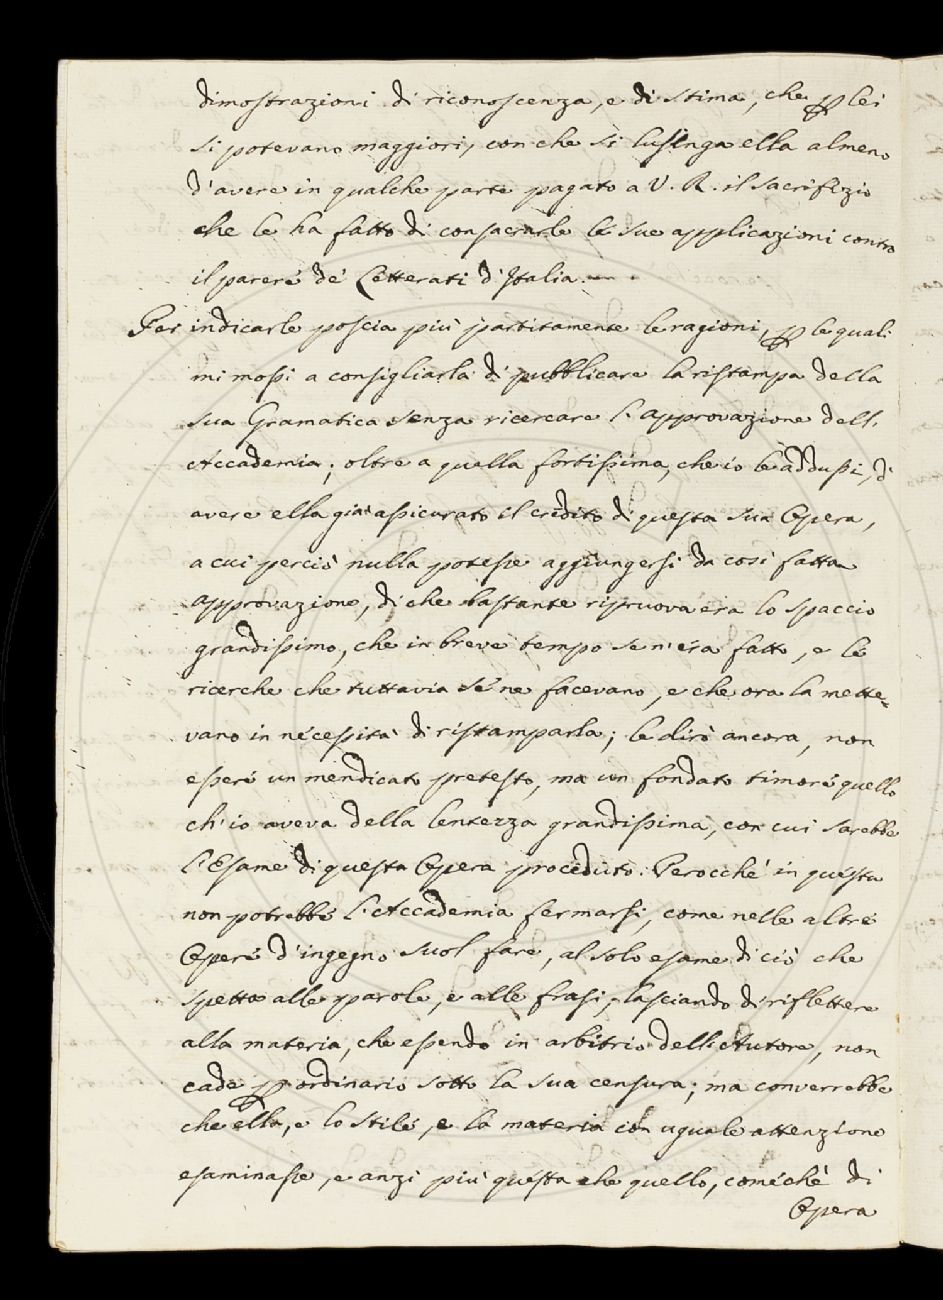 dimostrazioni di riconoscenza, e di stima, che p lei
si potevano maggiori, con che si lusinga ella almeno
d'avere in qualche parte pagato a V. R. il sacrifizio
che le ha fatto di consacrarle le sue applicazioni contro
il parere de' Letterati d'Italia.
Per indicarle poscia più partitamente le ragioni, p le quali
mi mossi a consigliarla di pubblicare la ristampa della
sua Gramatica senza ricercare l'approvazione dell'
Accademia; oltre a quella fortissima, che io le addussi, di
avere ella già assicurato il credito di questa sua Opera,
a cui perciò nulla potesse aggiungersi da così fatta
approvazione, di che bastante ripruova era lo spaccio
grandissimo, che in breve tempo se n'era fatto, e le
ricerche che tuttavia se ne facevano, e che ora la mette-
vano in necessità di ristamparla; le dirò ancora, non
essere un mendicato pretesto, ma un fondato timore quello
ch'io aveva della lentezza grandissima, con cui sarebbe
l'Esame di questa Opera proceduto. Perocché in questa
non potrebbe l'Accademia fermarsi, come nelle altre
Opere d'ingegno suol fare, al solo esame di ciò che
spetta alle parole, e alle frasi, lasciando di riflettere
alla materia, che essendo in arbitrio dell'Autore, non
cade p ordinario sotto la sua censura; ma converrebbe
che ella, e lo stile, e la materia con uguale attenzione
esaminasse, e anzi più questa che quello, comechè di
Opera